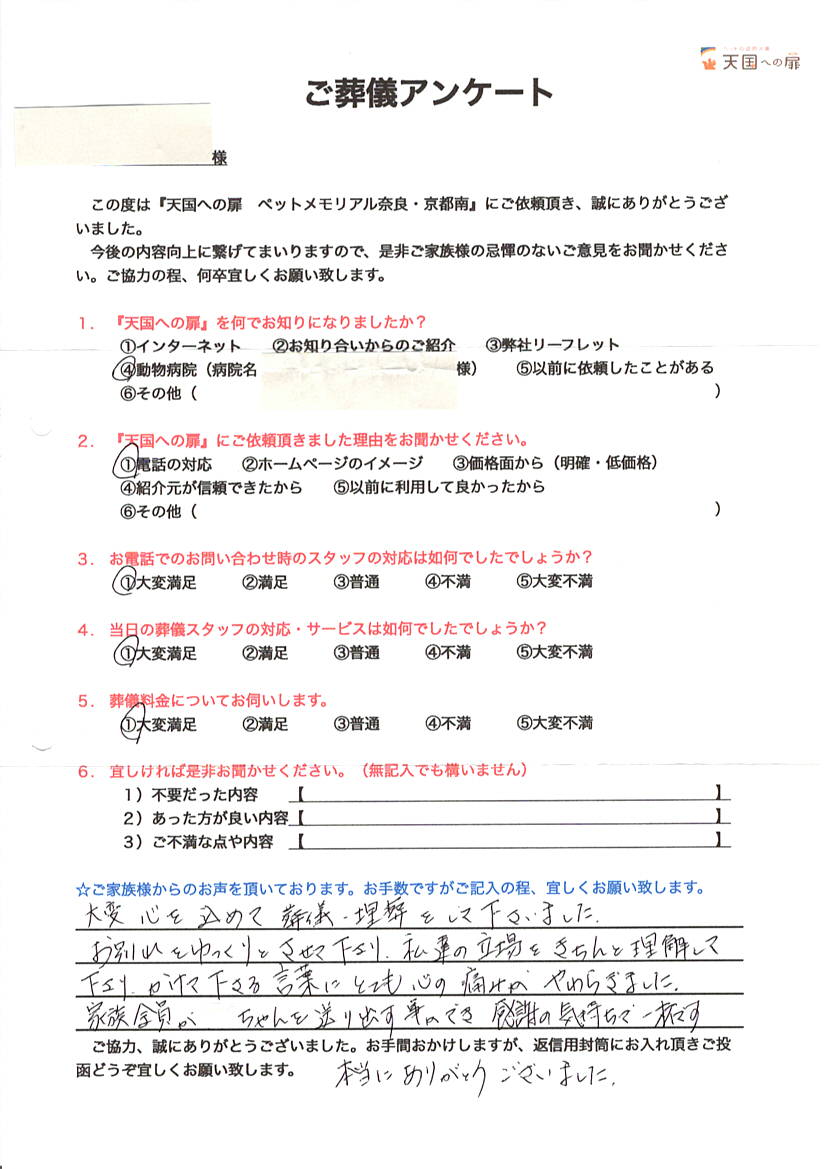 天国への扉
ご葬儀アンケート
様
この度は『天国への扉　ペットメモリアル奈良・京都南』にご依頼頂き、誠にありがとうござ
いました。
今後の内容向上に繋げてまいりますので、是非ご家族様の忌憚のないご意見をお聞かせくださ
い。ご協力の程、何卒宜しくお願い致します。
１．『天国への扉』を何でお知りになりましたか？
①インターネット　②お知り合いからのご紹介　③弊社リーフレット
④動物病院（病院名　様）　⑤以前に依頼したことがある
⑥その他（　）
２．『天国への扉』にご依頼頂きました理由をお聞かせください。
①電話の対応　②ホームページのイメージ　③価格面から（明確・低価格）
④紹介元が信頼できたから　⑤以前に利用して良かったから
⑥その他（　）
３．お電話でのお問い合わせ時のスタッフの対応は如何でしたでしょうか？
①大変満足　②満足　③普通　④不満　⑤大変不満
４．当日の葬儀スタッフの対応・サービスは如何でしたでしょうか？
①大変満足　②満足　③普通　④不満　⑤大変不満
５．葬儀料金についてお伺いします。
①大変満足　②満足　③普通　④不満　⑤大変不満
６．宜しければ是非お聞かせください。（無記入でも構いません）
１）不要だった内容　【　】
２）あった方が良い内容【　】
３）ご不満な点や内容　【　】
☆ご家族様からのお声を頂いております。お手数ですがご記入の程、宜しくお願い致します。
大変心を込めて葬儀・埋葬をして下さいました。
お別れをゆっくりとさせて下さり、私達の立場をきちんと理解して
下さり、かけて下さる言葉にとても心の痛みがやわらぎました。
家族全員が　ちゃんを送り出す事ができ感謝の気持ちで一杯です
ご協力、誠にありがとうございました。お手間おかけしますが、返信用封筒にお入れ頂きご投
函どうぞ宜しくお願い致します。
本当にありがとうございました。